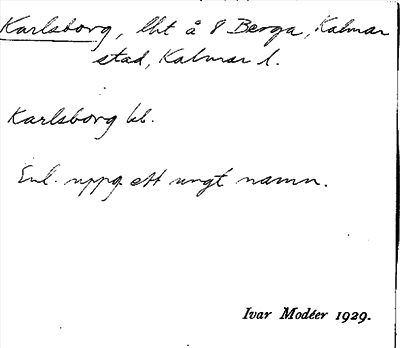 Karlsborg, lht å 8 Berga, Kalmar
stad, Kalmar l.
Karlsborg kb.
Enl. uppg. ett ungt namn.
Ivar Modéer 1929.